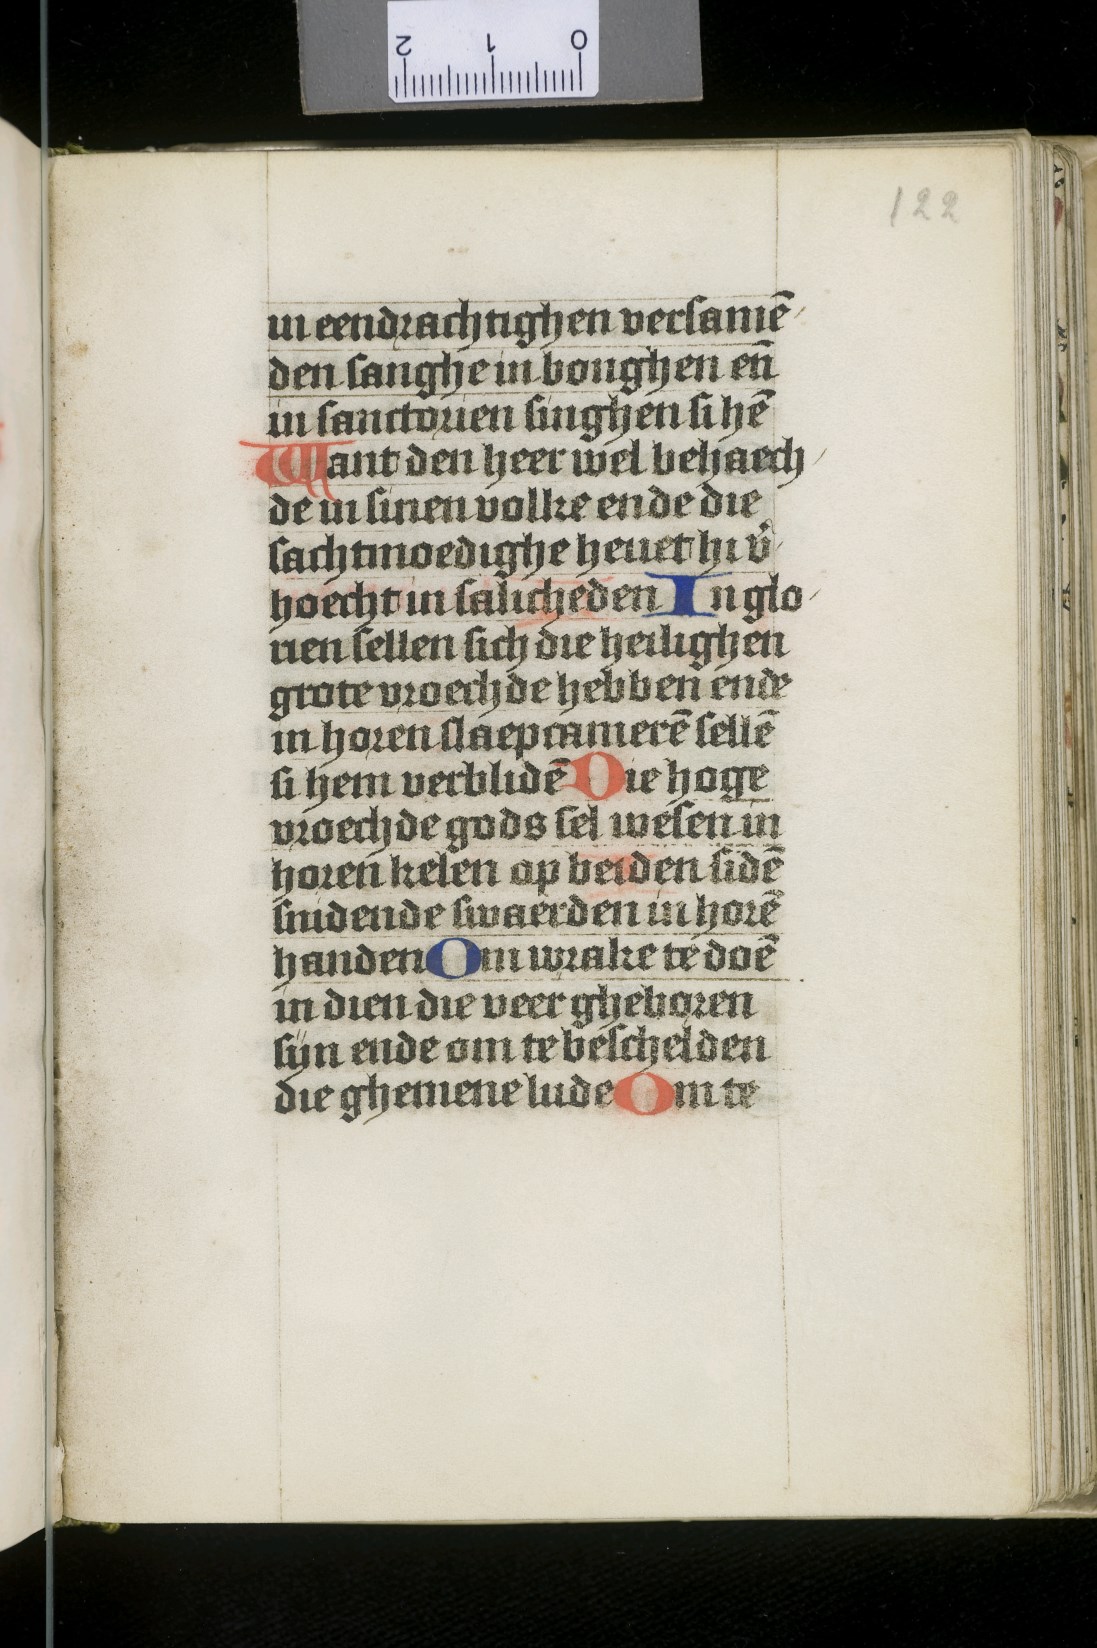 122
in eendrachtighen versamē
den sanghe in bonghen en̄
in sanctorien singhen si hē
Want den heer wel behaech
de in sinen volke ende die
sachtmoedighe heuet hi v̾
hoecht in salicheden In glo
rien sellen sich die heilighen
grote vroechde hebben ende
in horen slaepcamerē sellē
si hem verblidē Die hoge
vroechde gods sel wesen in
horen kelen op beiden sidē
snidende swaerden in horē
handen Om wrake te doē
in dien die veer gheboren
sijn ende om te beschelden
die ghemene lude Om te
2 1 0